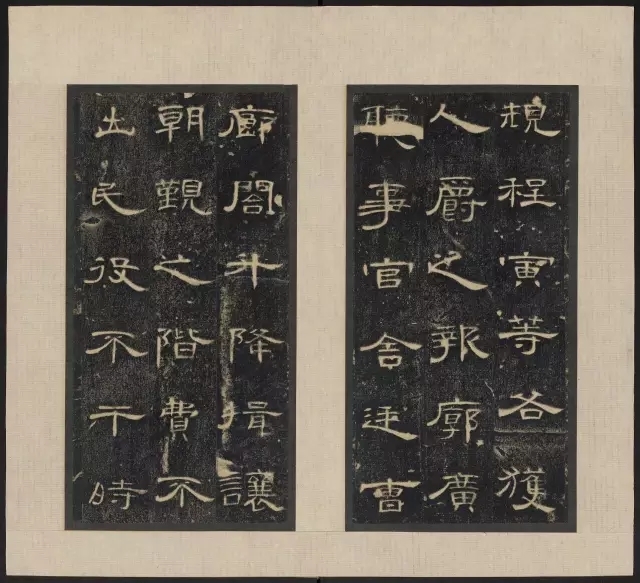 規程寅等各獲
人爵之報廓廣
聽事官舍廷曹
廊閣升降揖讓
朝覲之階費不
出民役不干時